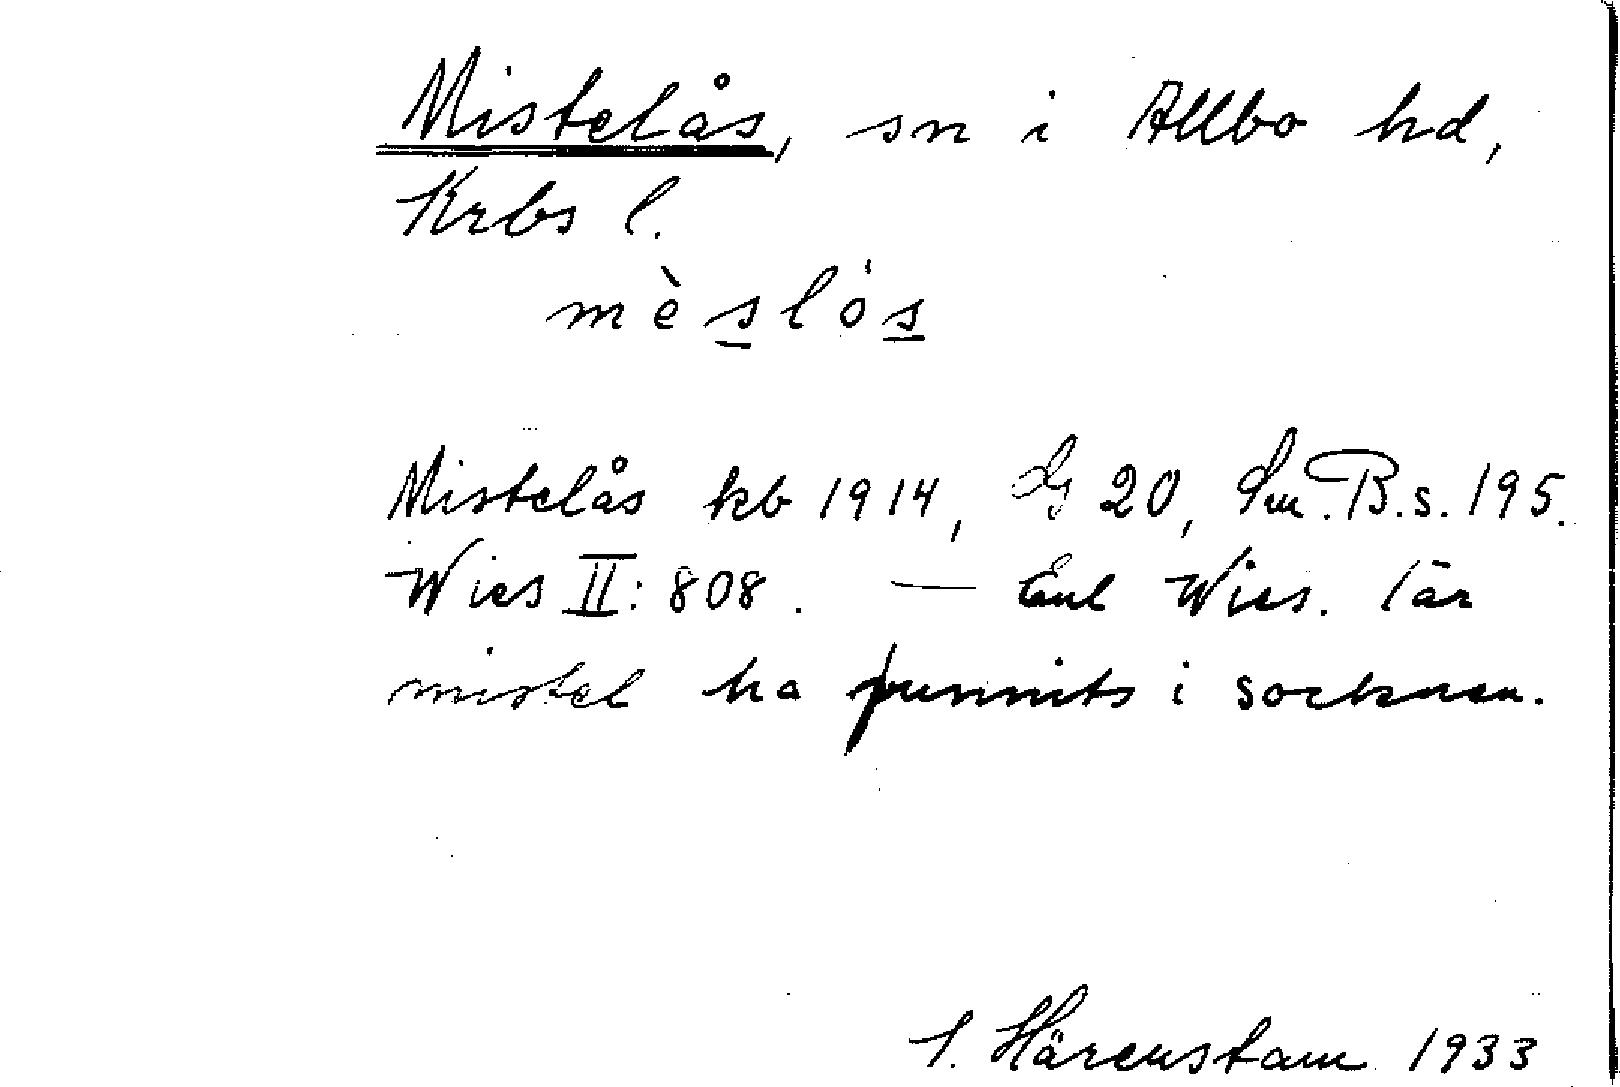 Mistelås, sn i Allbo hd,
Krbs l.
mèslós
Mistelås kb 1914, G 20, Sm. B. s. 195.
Wies II: 808. — Enl Wies. lär
mistel ha funnits i socknen.
I. Härenstam 1933